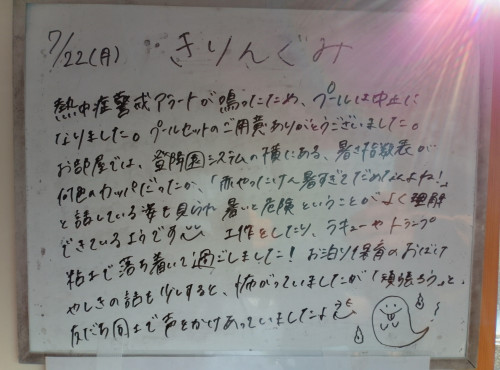 7/22(月) きりんぐみ
熱中症警戒アラートが鳴ったため、プールは中止に
なりました。プールセットのご用意ありがとうございました。
お部屋では、登降園システムの横にある、暑さ指数表が
何色のカッパだったか、「赤やったけん暑すぎてだめなんよね!」
と話している姿も見られ暑いと危険ということがよく理解
できているようです 工作をしたり、ラキューやトランプ
粘土で落ち着いて過ごしました! お泊り保育のおばけ
やしきの話も少しすると、怖がっていましたが「頑張ろう」と、
友だち同士で声をかけあっていましたよ